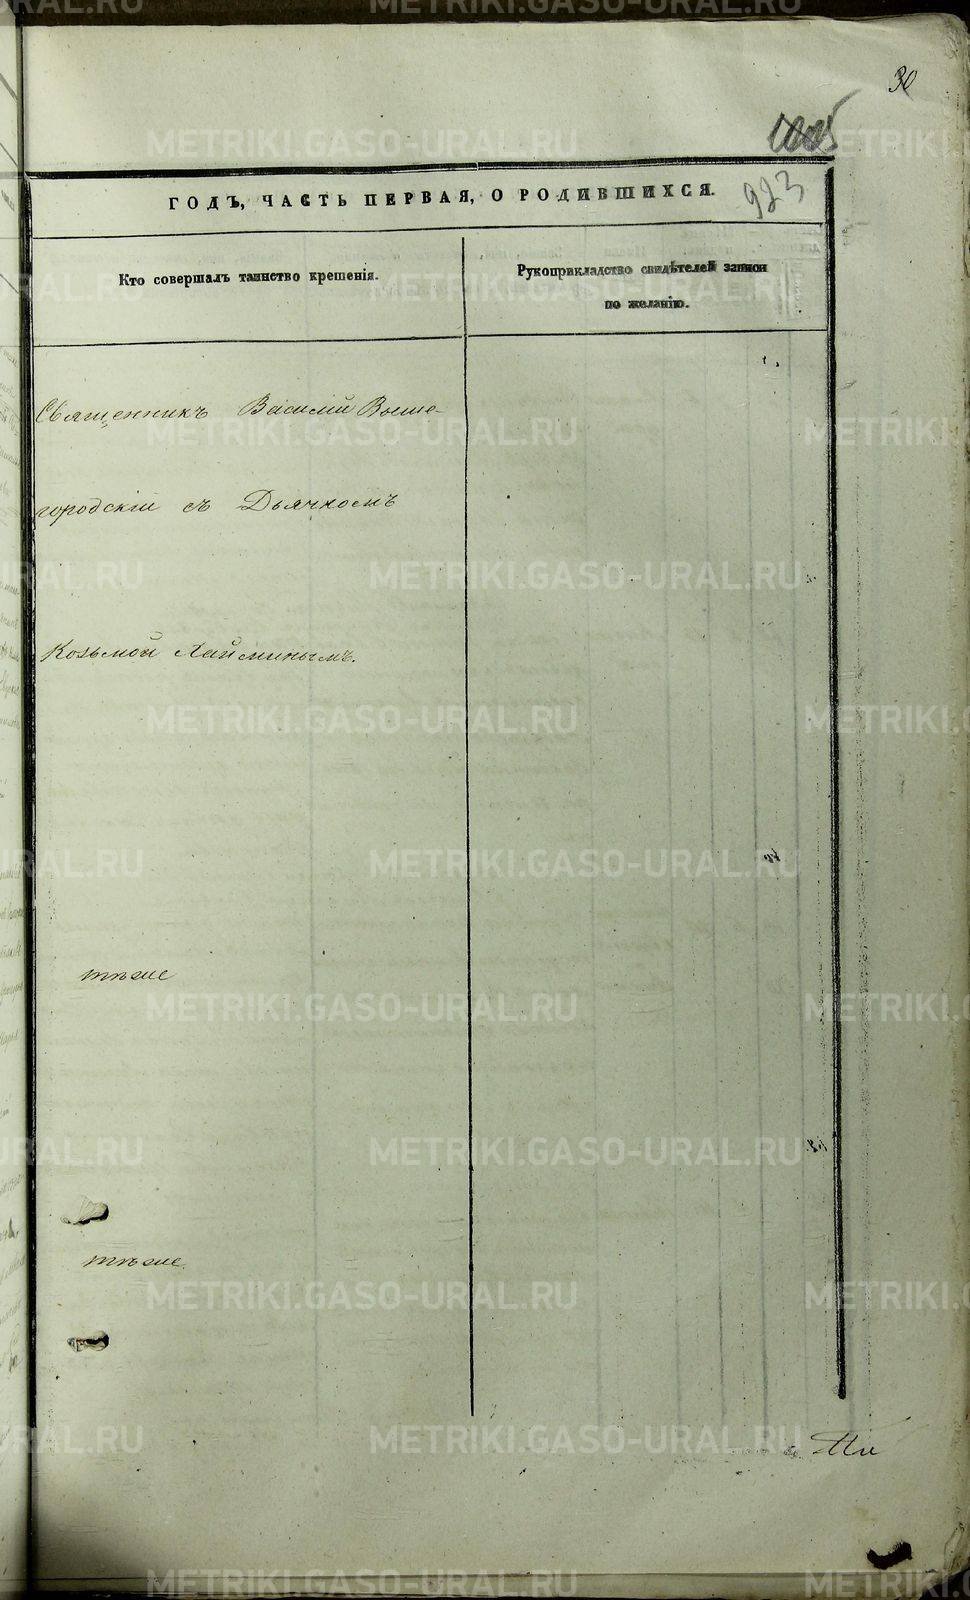 30
923
ГОДЪ, ЧАСТЬ ПЕРВАЯ, О РОДИВШИХСЯ.
Кто совершалъ таинство крещенія.
Рукоприкладство свидѣтелей записи
по желанію.
Священникъ Василій Выше-
городскій съ Дьячкомъ
Козьмой Хайминымъ.
тѣже
тѣже
METRIKI.GASO-URAL.RU